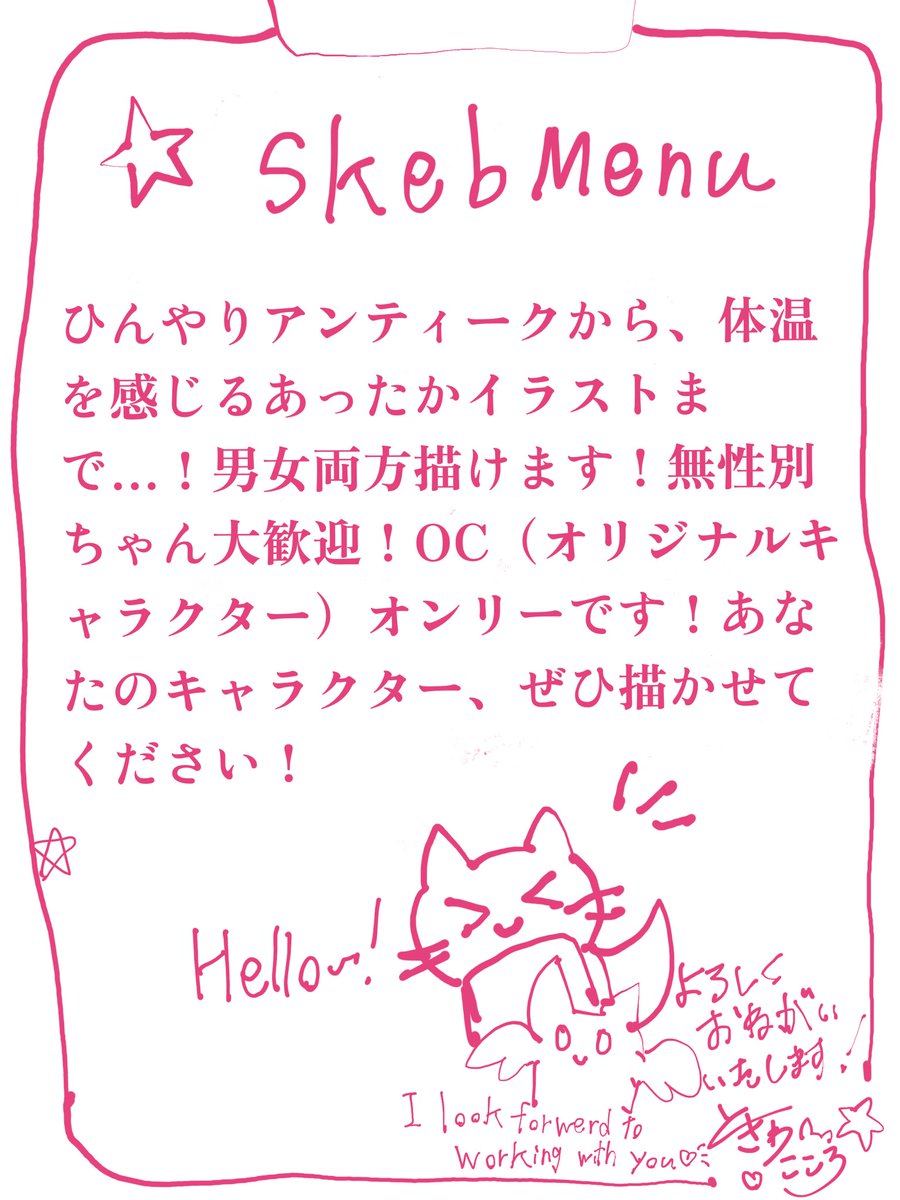 Skeb Menu
ひんやりアンティークから、体温
を感じるあったかイラストま
で…！男女両方描けます！無性別
ちゃん大歓迎！OC（オリジナルキ
ャラクター）オンリーです！あな
たのキャラクター、ぜひ描かせて
ください！
Hello~!
よろしく
おねがい
いたします！
I look forwerd to
working with you♡
ときわ
こころ